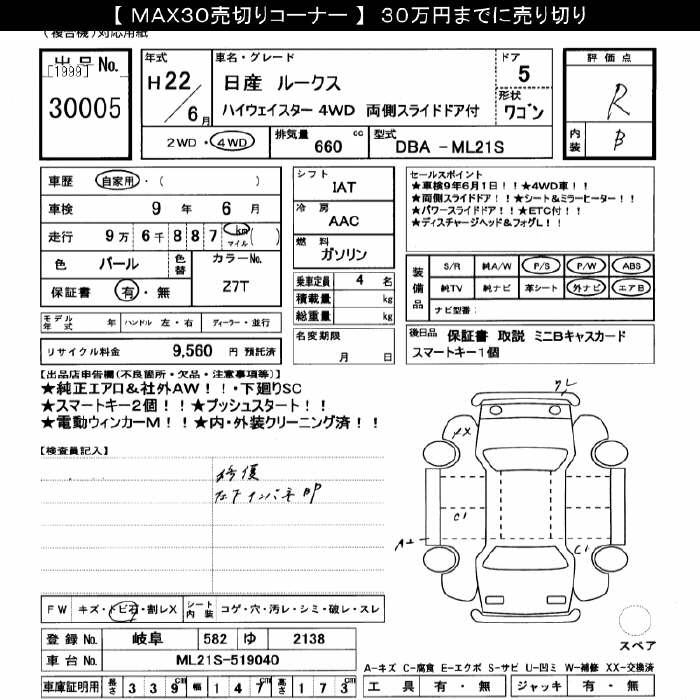 【 MAX30売切りコーナー 】 30万円までに売り切り
(複合機)対応用紙
出品 No.
[1999]
30005
年式
H22/6月
車名・グレード
日産 ルークス
ハイウェイスター 4WD 両側スライドドア付
ドア
5
形状
ワゴン
評価点
R
内装
B
2WD・4WD
排気量
660 cc
型式
DBA - ML21S
車歴 自家用・( )
車検 9 年 6 月
走行 9万 6千 8 8 7 km マイル ( )
色 パール 色替 カラーNo.
保証書 有・無 Z7T
シフト
IAT
冷房
AAC
燃料
ガソリン
乗車定員 4 名
積載量 kg
総重量 kg
名変期限
月 日
セールスポイント
★車検9年6月1日!!★4WD車!!
★両側スライドドア!!★シート&ミラーヒーター!!
★パワースライドドア!!★ETC付!!
★ディスチャージヘッド&フォグL!!
装備品
S/R 純A/W P/S P/W ABS
純TV 純ナビ 革シート 外ナビ エアB
ナビ型番:
モデル年式 年 ハンドル 左・右 ディーラー・並行
リサイクル料金 9,560 円 預託済
後日品 保証書 取説 ミニBキャスカード
スマートキー1個
【出品店申告欄(不良箇所・欠品・注意事項等)】
★純正エアロ&社外AW!!・下廻りSC
★スマートキー2個!!★プッシュスタート!!
★電動ウィンカーM!!★内・外装クリーニング済!!
【検査員記入】
修復
右Fインパネ部
ワレ
XX
C1
A2
C1
FW キズ・トビ石・割レX シート内装 コゲ・穴・汚レ・シミ・破レ・スレ
スペア
登録 No. 岐阜 582 ゆ 2138
車台 No. ML21S-519040
A-キズ C-腐食 E-エクボ S-サビ U-凹ミ W-補修 XX-交換済
車庫証明用 長さ 3 3 9 cm 幅 1 4 7 cm 高さ 1 7 3 cm
工具 有・無 ジャッキ 有・無